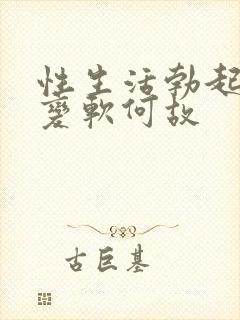 性生活勃起
變軟何故
古巨基